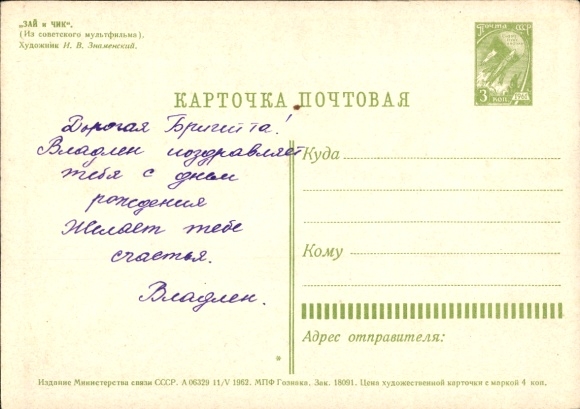 „ЗАЙ и ЧИК".
(Из советского мультфильма).
Художник И. В. Знаменский.
Почта СССР
3 коп.
КАРТОЧКА ПОЧТОВАЯ
Дорогая Бригитта!
Владлен поздравляет
тебя с днем
рождения
Желает тебе
счастья.
Владлен.
Куда
Кому
Адрес отправителя:
Издание Министерства связи СССР. А 06329 11/V 1962. МПФ Гознака. Зак. 18091. Цена художественной карточки с маркой 4 коп.